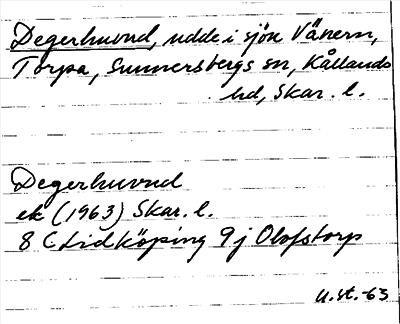 Degerhuvud, udde i sjön Vänern,
Torpa, Sunnersbergs sn, Kållands
hd, Skar. l.
Degerhuvud
ek (1963) Skar. l.
8 C Lidköping 9 j Olofstorp
U.st.-63